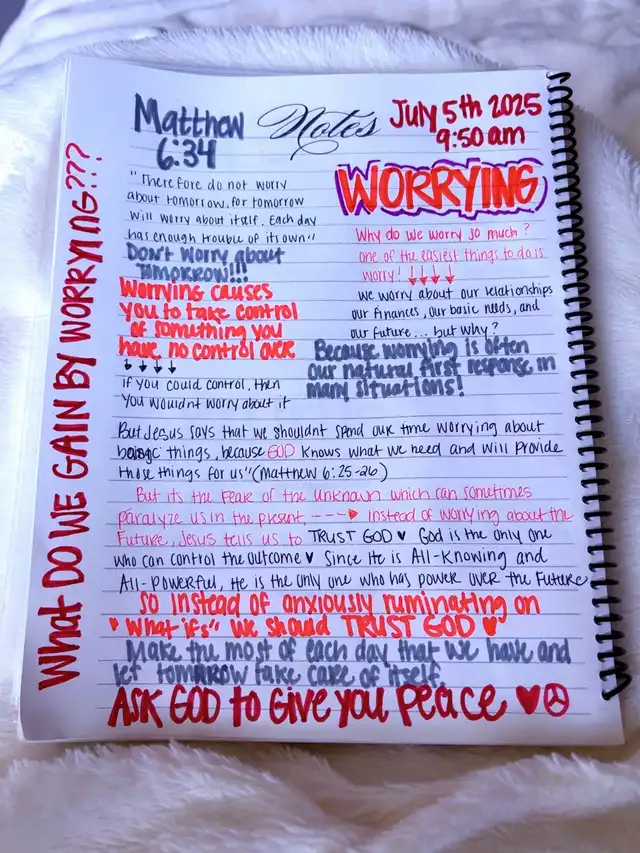 Matthew
6:34
Notes
July 5th 2025
9:50 am
"Therefore do not worry
about tomorrow, for tomorrow
will worry about itself. Each day
has enough trouble of its own"
Don't worry about
TOMORROW!!!
Worrying causes
you to take control
of something you
have no control over
if you could control, then
you wouldnt worry about it
WORRYING
Why do we worry so much?
one of the easiest things to do is
worry!
we worry about our relationships
our finances, our basic needs, and
our future... but why?
Because worrying is often
our natural first response in
many situations!
But Jesus says that we shouldnt spend our time worrying about
things, because GOD knows what we need and will provide
those things for us" (Matthew 6:25-26)
But its the fear of the unknown which can sometimes
paralyze us in the present, ----> instead of worrying about the
future, Jesus tells us to TRUST GOD ♥ God is the only one
who can control the outcome ♥ Since He is All-Knowing and
All-Powerful, He is the only one who has power over the future
so instead of anxiously ruminating on
"What ifs" we should TRUST GOD ♥
Make the most of each day that we have and
let tomrrow take care of itself.
ASK GOD to Give you peace ♥
What DO WE GAIN BY WORRYING???